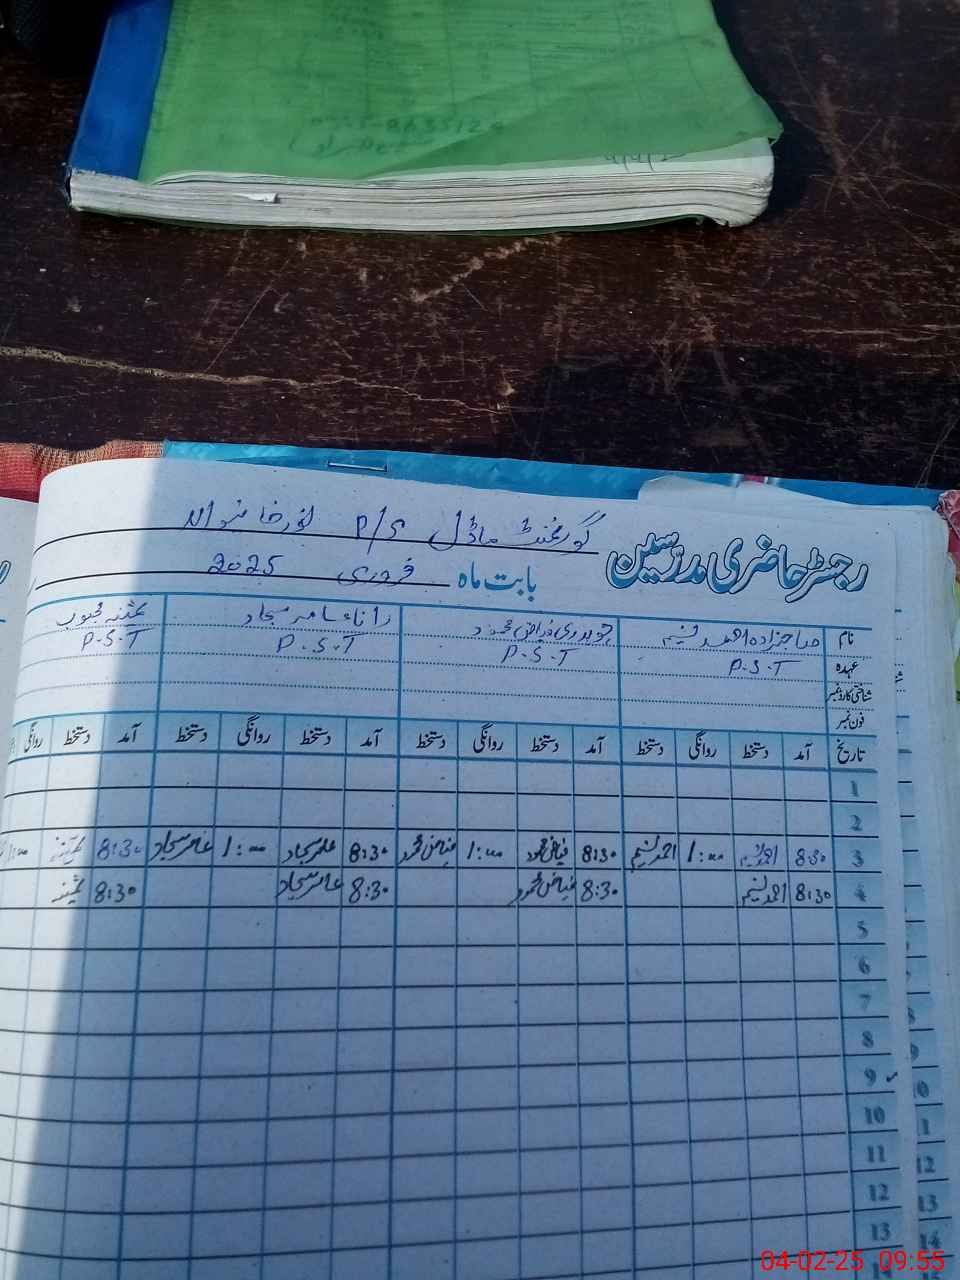 رجسٹر حاضری مدرسین
گورنمنٹ ماڈل P/S
بابت ماہ فروری 2025
نام صاحبزادہ احمد نسیم چوہدری فیاض محمود رانا عامر سجاد ثمینہ محبوب
عہدہ P.S.T P.S.T P.S.T P.S.T
شناختی کارڈ نمبر
فون نمبر
تاریخ آمد دستخط روانگی دستخط آمد دستخط روانگی دستخط آمد دستخط روانگی دستخط آمد دستخط روانگی
1
2
3 8:30 احمد نسیم 1:00 احمد نسیم 8:30 فیاض محمود 1:00 فیاض محمود 8:30 عامر سجاد 1:00 عامر سجاد 8:30 ثمینہ 1:00
4 8:30 احمد نسیم 8:30 فیاض محمود 8:30 عامر سجاد 8:30 ثمینہ
5
6
7
8
9
10
11
12
13
8
9
10
11
12
13
14
04-02-25 09:55